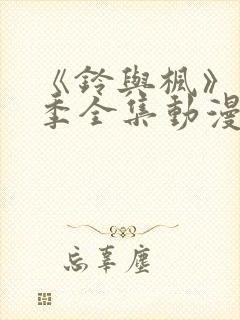 《鈴與楓》
季全集動漫
忘辜塵